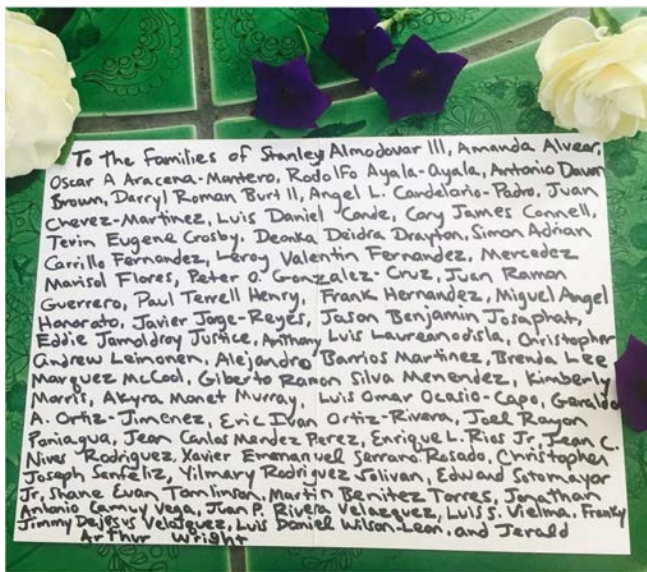 To the families of Stanley Almodovar III, Amanda Alvear,
Oscar A Aracena-Montero, Rodolfo Ayala-Ayala, Antonio Davon
Brown, Darryl Roman Burt II, Angel L. Candelario-Padro, Juan
Chevez-Martinez, Luis Daniel Conde, Cory James Connell,
Tevin Eugene Crosby, Deonka Deidra Drayton, Simon Adrian
Carrillo Fernandez, Leroy Valentin Fernandez, Mercedez
Marisol Flores, Peter O. Gonzalez-Cruz, Juan Ramon
Guerrero, Paul Terrell Henry, Frank Hernandez, Miguel Angel
Honorato, Javier Jorge-Reyes, Jason Benjamin Josaphat,
Eddie Jamoldroy Justice, Anthony Luis Laureanodisla, Christopher
Andrew Leinonen, Alejandro Barrios Martinez, Brenda Lee
Marquez McCool, Giberto Ramon Silva Menendez, Kimberly
Morris, Akyra Monet Murray, Luis Omar Ocasio-Capo, Geraldo
A. Ortiz-Jimenez, Eric Ivan Ortiz-Rivera, Joel Rayon
Paniagua, Jean Carlos Mendez Perez, Enrique L. Rios Jr, Jean C.
Nives Rodriguez, Xavier Emmanuel Serrano Rosado, Christopher
Joseph Sanfeliz, Yilmary Rodriguez Solivan, Edward Sotomayor
Jr, Shane Evan Tomlinson, Martin Benitez Torres, Jonathan
Antonio Camuy Vega, Juan P. Rivera Velazquez, Luis S. Vielma, Franky
Jimmy Dejesus Velazquez, Luis Daniel Wilson-Leon, and Jerald
Arthur Wright